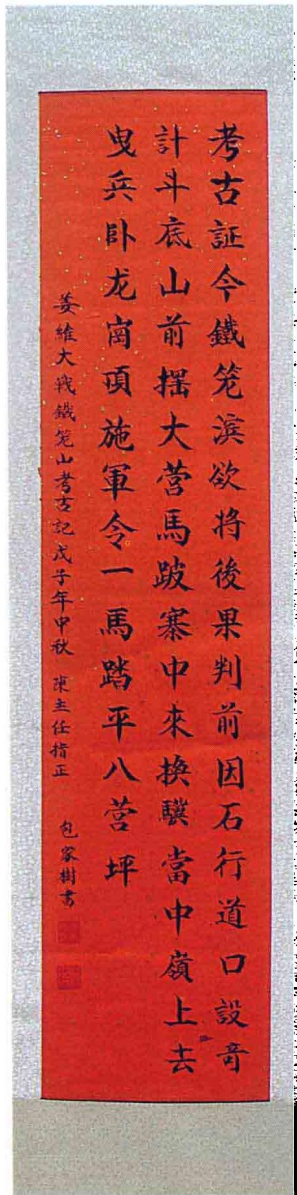 考古証今鐵笼滨欲将後果判前因石行道口設奇
計斗底山前擺大营馬跛寨中來换驥當中嶺上去
曳兵卧龙崗頂施軍令一馬踏平八营坪
姜維大戰鐵笼山考古記戊子年中秋 陳主任指正 包家樹書